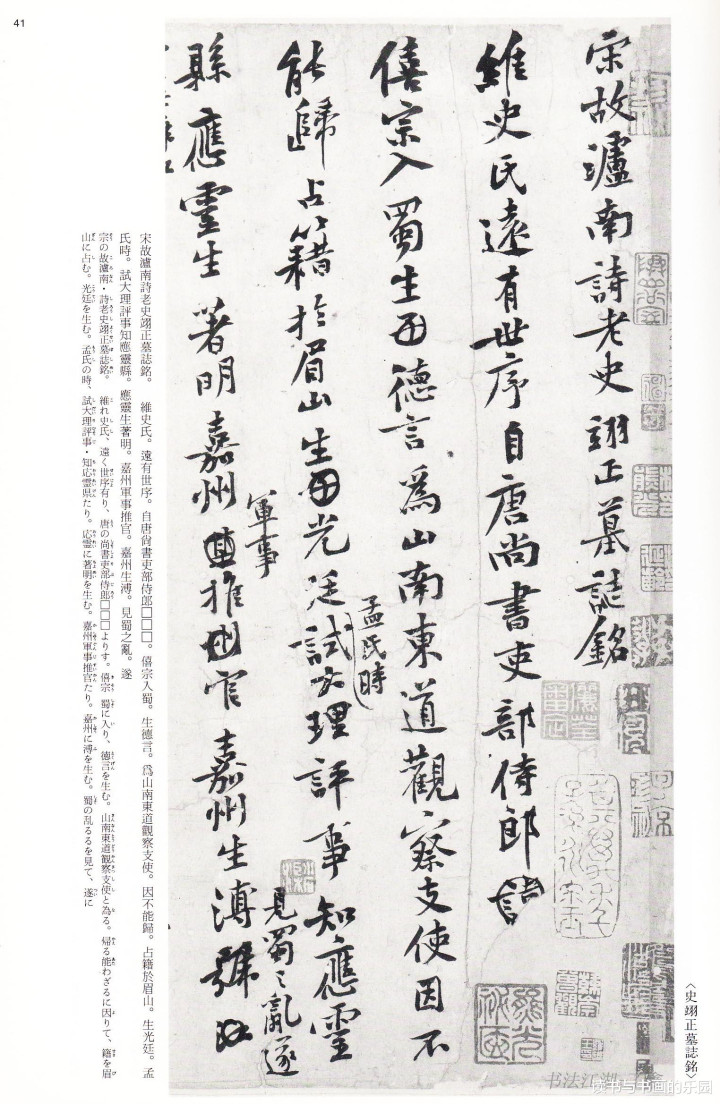 41
宋故瀘南詩老史翊正墓誌銘
維史氏遠有世序自唐尚書吏部侍郎
僖宗入蜀生德言為山南東道觀察支使因不
能歸占籍於眉山生光廷孟氏時試大理評事知應靈
縣應靈生著明嘉州軍事推官嘉州生溥見蜀之亂遂
〈史翊正墓誌銘〉
宋故瀘南詩老史翊正墓誌銘。 維史氏。遠有世序。自唐尚書吏部侍郎□□□。僖宗入蜀。生德言。爲山南東道觀察支使。因不能歸。占籍於眉山。生光廷。孟
氏時。試大理評事知應靈縣。應靈生著明。嘉州軍事推官。嘉州生溥。見蜀之亂。遂
宗の故瀘南・詩老史翊正墓誌銘。 維れ史氏、遠く世序有り、唐の尚書吏部侍郎□□□よりす。僖宗 蜀に入り、徳言を生む。山南東道観察支使と為る。帰る能わざるに因りて、籍を眉
山に占む。光廷を生む。孟氏の時、試大理評事・知応霊県たり。応霊に著明を生む。嘉州軍事推官たり。嘉州に溥を生む。蜀の乱るるを見て、遂に
书法江湖
读书与书画的乐园